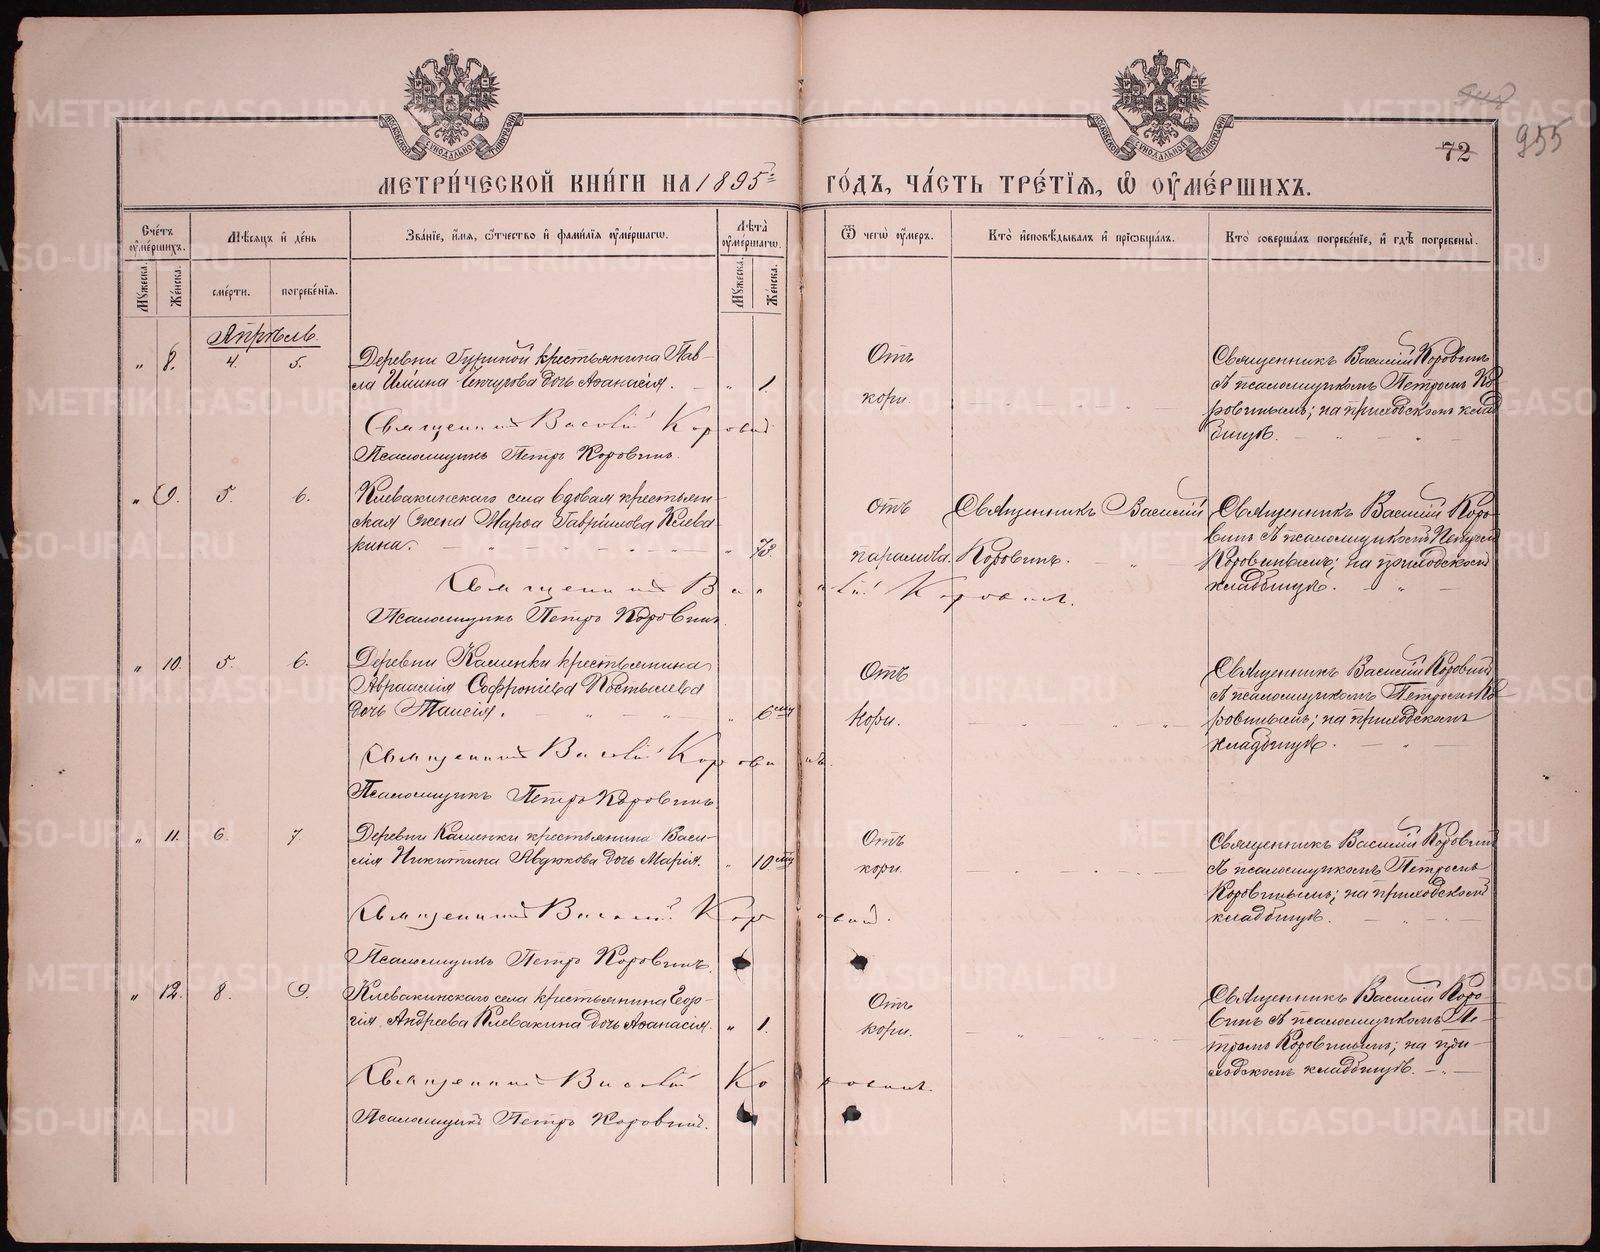 МОСКОВСКОЙ СѴНОДАЛЬНОЙ ТИПОГРАФІИ
МОСКОВСКОЙ СѴНОДАЛЬНОЙ ТИПОГРАФІИ
948
955
72
МЕТРИ́ЧЕСКОЙ КНИ́ГИ НА 1895й
ГО́ДЪ, ЧА́СТЬ ТРЕ́ТЇѦ, Ѡ҆ ОУ҆МЕ́РШИХЪ.
Сче́тъ оу҆ме́ршихъ.
Мѣ́сѧцъ и҆ де́нь
Зва́нїе, и҆́мѧ, ѻ҆́тчество и҆ фами́лїѧ оу҆ме́ршагѡ.
Лѣ́та оу҆ме́ршагѡ.
Ѿ чегѡ̀ оу҆́меръ.
Кто̀ и҆сповѣ́дывалъ и҆ прїѡбща́лъ.
Кто̀ соверша́лъ погребе́нїе, и҆ гдѣ̀ погребены̀.
Мꙋ́жеска.
Же́нска.
сме́рти.
погребе́нїѧ.
Мꙋ́жеска.
Же́нска.
Апрѣль
" 8. 4. 5.
Деревни Гуриной крестьянина Пав-
ла Ильина дочь Аѳанасія. - " 1.
Священникъ Василій Коровин
Псаломщикъ Петръ Коровинъ.
Отъ
кори.
Священникъ Василій Коровинъ
съ псаломщикомъ Петромъ Ко-
ровинымъ; на приходскомъ клад-
бищѣ.
" 9. 5. 6.
Клевакинскаго села вдовая крестьян-
ская жена Марѳа Гаврилова Клева-
кина. " 73.
Священникъ Василій Коровинъ.
Псаломщикъ Петръ Коровинъ
Отъ
паралича.
Священникъ Василій
Коровинъ.
Священникъ Василій Коро-
винъ съ псаломщикомъ Петромъ
Коровинымъ; на приходскомъ
кладбищѣ.
" 10. 5. 6.
Деревни Каменки крестьянина
Авраамія Софроніева Костылева
дочь Таисія. " 6 мц
Священникъ Василій Коровинъ.
Псаломщикъ Петръ Коровинъ.
Отъ
Кори.
Священникъ Василій Коровинъ
съ псаломщикомъ Петромъ Ко-
ровинымъ; на приходскомъ
кладбищѣ.
" 11. 6. 7.
Деревни Каменки крестьянина Васи-
лія Никитина Авдюкова дочь Марія. " 10 мц
Священникъ Василій Коровин.
Псаломщикъ Петръ Коровинъ.
Отъ
кори.
Священникъ Василій Коровинъ
съ псаломщикомъ Петромъ
Коровинымъ; на приходскомъ
кладбищѣ.
" 12. 8. 9.
Клевакинскаго села крестьянина Геор-
гія Андреева Клевакина дочь Аѳанасія. " 1.
Священникъ Василій Коровинъ.
Псаломщикъ Петръ Коровинъ.
Отъ
кори.
Священникъ Василій Коро-
винъ съ псаломщикомъ Пе-
тромъ Коровинымъ; на при-
ходскомъ кладбищѣ.
METRIKI.GASO-URAL.RU